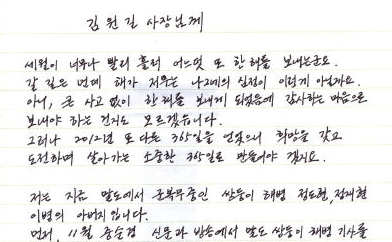 김원길 사장님께
세월이 너무나 빨리 흘러 어느덧 또 한해를 보내는군요.
갈 길은 먼데 해가 저무는 나그네의 심정이 이렇게 아닐까요.
아니, 큰 사고 없이 한해를 보내게 되었음에 감사하는 마음으로
보내야 하는 건지도 모르겠습니다.
그러나 2012년 또 다른 365일을 얻었으니 희망을 갖고
도전하며 살아가는 소중한 365일로 만들어야 겠지요.
저는 지금 말도에서 군복무중인 쌍둥이 해병 정도현, 정재현
이병의 아버지 입니다.
먼저, 11월 중순경 신문과 방송에서 말도 쌍둥이 해병 기사를